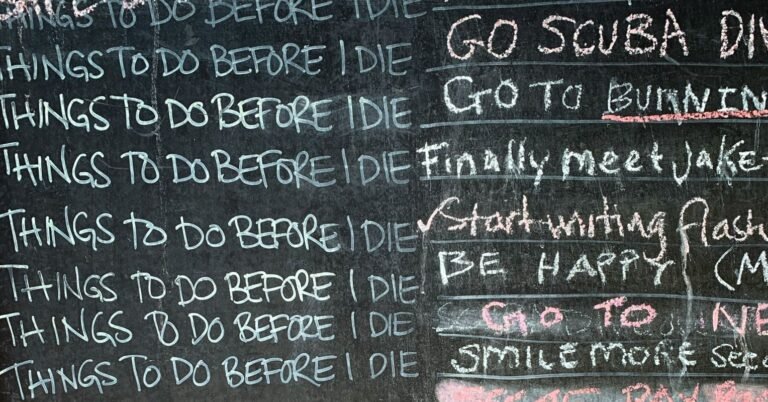 THINGS TO DO BEFORE I DIE
THINGS TO DO BEFORE I DIE GO SCUBA
THINGS TO DO BEFORE I DIE GO TO
THINGS TO DO BEFORE I DIE Finally meet Jake
THINGS TO DO BEFORE I DIE Start writing flash
THINGS TO DO BEFORE I DIE BE HAPPY
THINGS TO DO BEFORE I DIE GO TO NE
THINGS TO DO BEFORE I DIE SMILE MORE